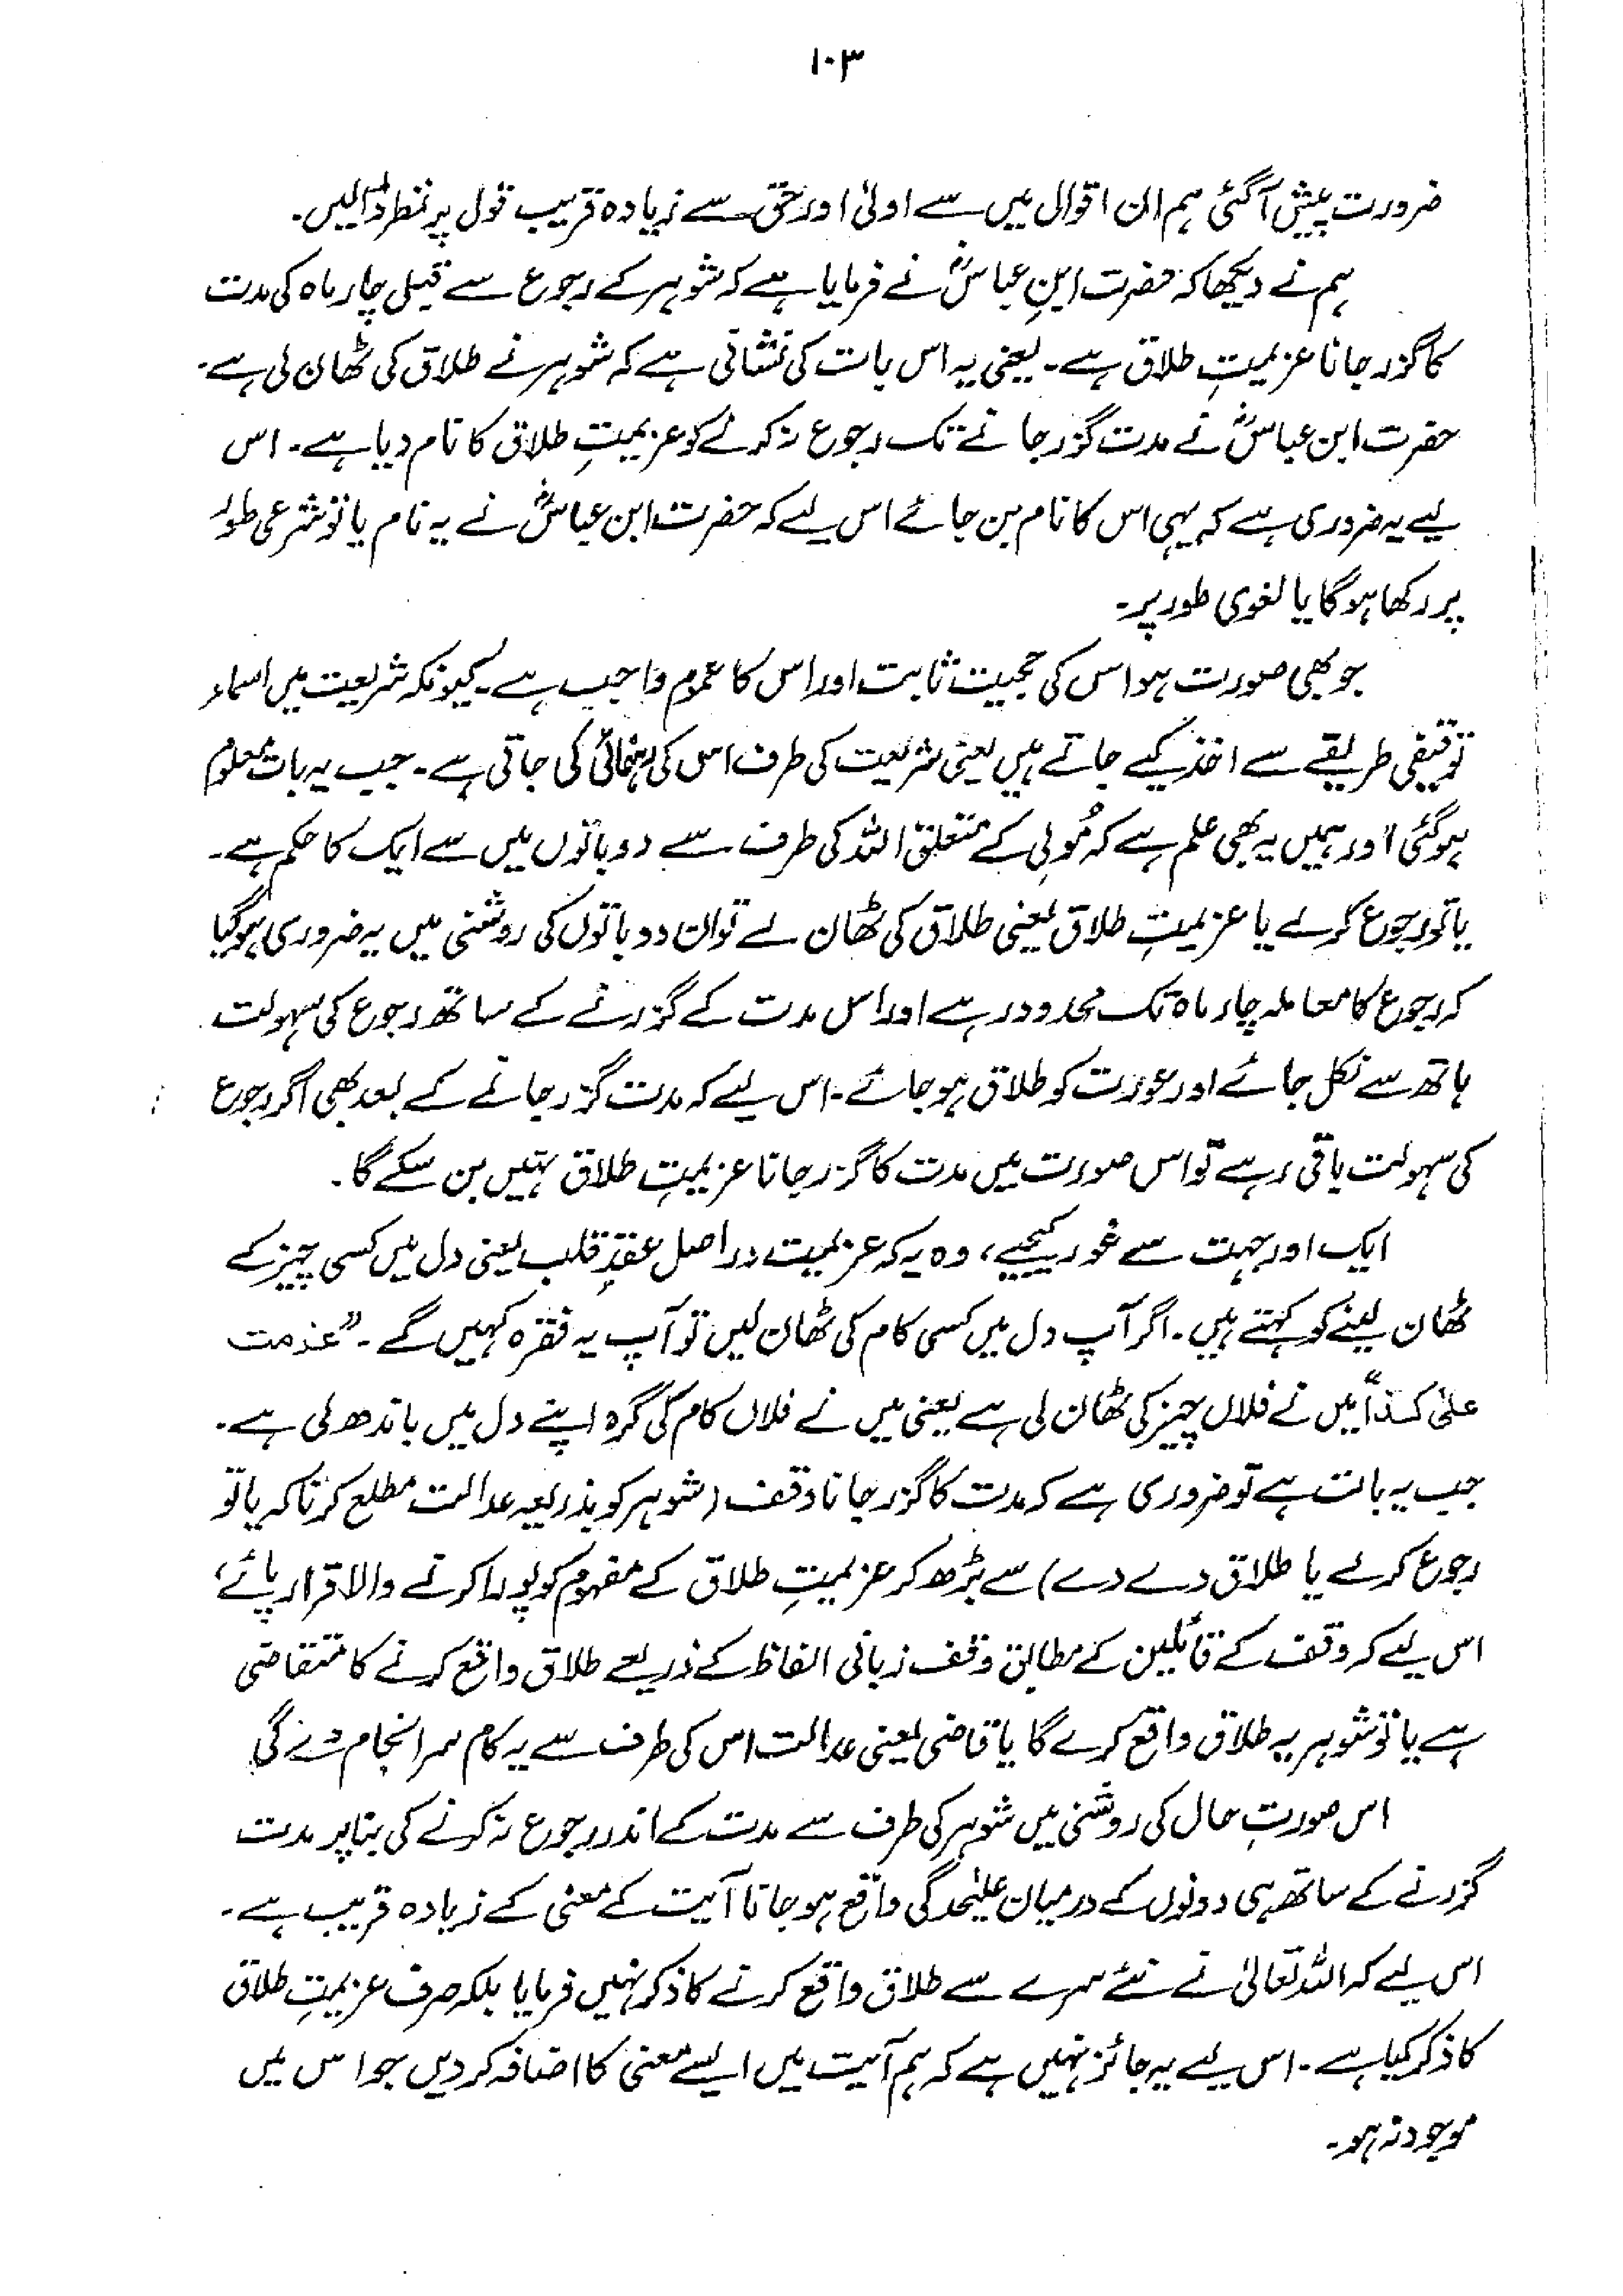 ۱۰۳
ضرورت پیش آگئی ہم ان اقوال میں سے اولیٰ اور حق سے زیادہ قریب قول پر نظر ڈالیں۔
ہم نے دیکھا کہ حضرت ابنِ عباسؓ نے فرمایا ہے کہ شوہر کے رجوع سے قبل چار ماہ کی مدت
کا گزر جانا عزیمتِ طلاق ہے۔ یعنی یہ اس بات کی نشانی ہے کہ شوہر نے طلاق کی ٹھان لی ہے۔
حضرت ابن عباسؓ نے مدت گزر جانے تک رجوع نہ کرنے کو عزیمتِ طلاق کا نام دیا ہے۔ اس
لیے یہ ضروری ہے کہ یہی اس کا نام بن جائے اس لیے کہ حضرت ابن عباسؓ نے یہ نام یا تو شرعی طور
پر رکھا ہوگا یا لغوی طور پر۔
جو بھی صورت ہو اس کی حجیت ثابت اور اس کا عموم واجب ہے۔ کیونکہ شریعت میں اسماء
توقیفی طریقے سے اخذ کیے جاتے ہیں یعنی شریعت کی طرف اس کی رہنمائی کی جاتی ہے۔ جب یہ بات معلوم
ہوگئی اور ہمیں یہ بھی علم ہے کہ مُولِی کے متعلق اللہ کی طرف سے دو باتوں میں سے ایک کا حکم ہے۔
یا تو رجوع کرلے یا عزیمتِ طلاق یعنی طلاق کی ٹھان لے تو ان دو باتوں کی روشنی میں یہ ضروری ہوگیا
کہ رجوع کا معاملہ چار ماہ تک محدود رہے اور اس مدت کے گزرنے کے ساتھ رجوع کی سہولت
ہاتھ سے نکل جائے اور عورت کو طلاق ہو جائے۔ اس لیے کہ مدت گزر جانے کے بعد بھی اگر رجوع
کی سہولت باقی رہے تو اس صورت میں مدت کا گزر جانا عزیمتِ طلاق نہیں بن سکے گا۔
ایک اور جہت سے غور کیجیے، وہ یہ کہ عزیمت دراصل عقدِ قلب یعنی دل میں کسی چیز کے
ٹھان لینے کو کہتے ہیں۔ اگر آپ دل میں کسی کام کی ٹھان لیں تو آپ یہ فقرہ کہیں گے۔ "عزمت
علیٰ کذا" میں نے فلاں چیز کی ٹھان لی ہے یعنی میں نے فلاں کام کی گرہ اپنے دل میں باندھ لی ہے۔
جب یہ بات ہے تو ضروری ہے کہ مدت کا گزر جانا وقف (شوہر کو بذریعہ عدالت مطلع کرنا کہ یا تو
رجوع کرلے یا طلاق دے دے) سے بڑھ کر عزیمتِ طلاق کے مفہوم کو پورا کرنے والا قرار پائے،
اس لیے کہ وقف کے قائلین کے مطابق وقف زبانی الفاظ کے ذریعے طلاق واقع کرنے کا متقاضی
ہے یا تو شوہر یہ طلاق واقع کرے گا یا قاضی یعنی عدالت اس کی طرف سے یہ کام سرانجام دے گی
اس صورتِ حال کی روشنی میں شوہر کی طرف سے مدت کے اندر رجوع نہ کرنے کی بنا پر مدت
گزرنے کے ساتھ ہی دونوں کے درمیان علیٰحدگی واقع ہو جانا آیت کے معنی کے زیادہ قریب ہے۔
اس لیے کہ اللہ تعالیٰ نے نئے سرے سے طلاق واقع کرنے کا ذکر نہیں فرمایا بلکہ صرف عزیمتِ طلاق
کا ذکر کیا ہے۔ اس لیے یہ جائز نہیں ہے کہ ہم آیت میں ایسے معنی کا اضافہ کردیں جو اس میں
موجود نہ ہو۔